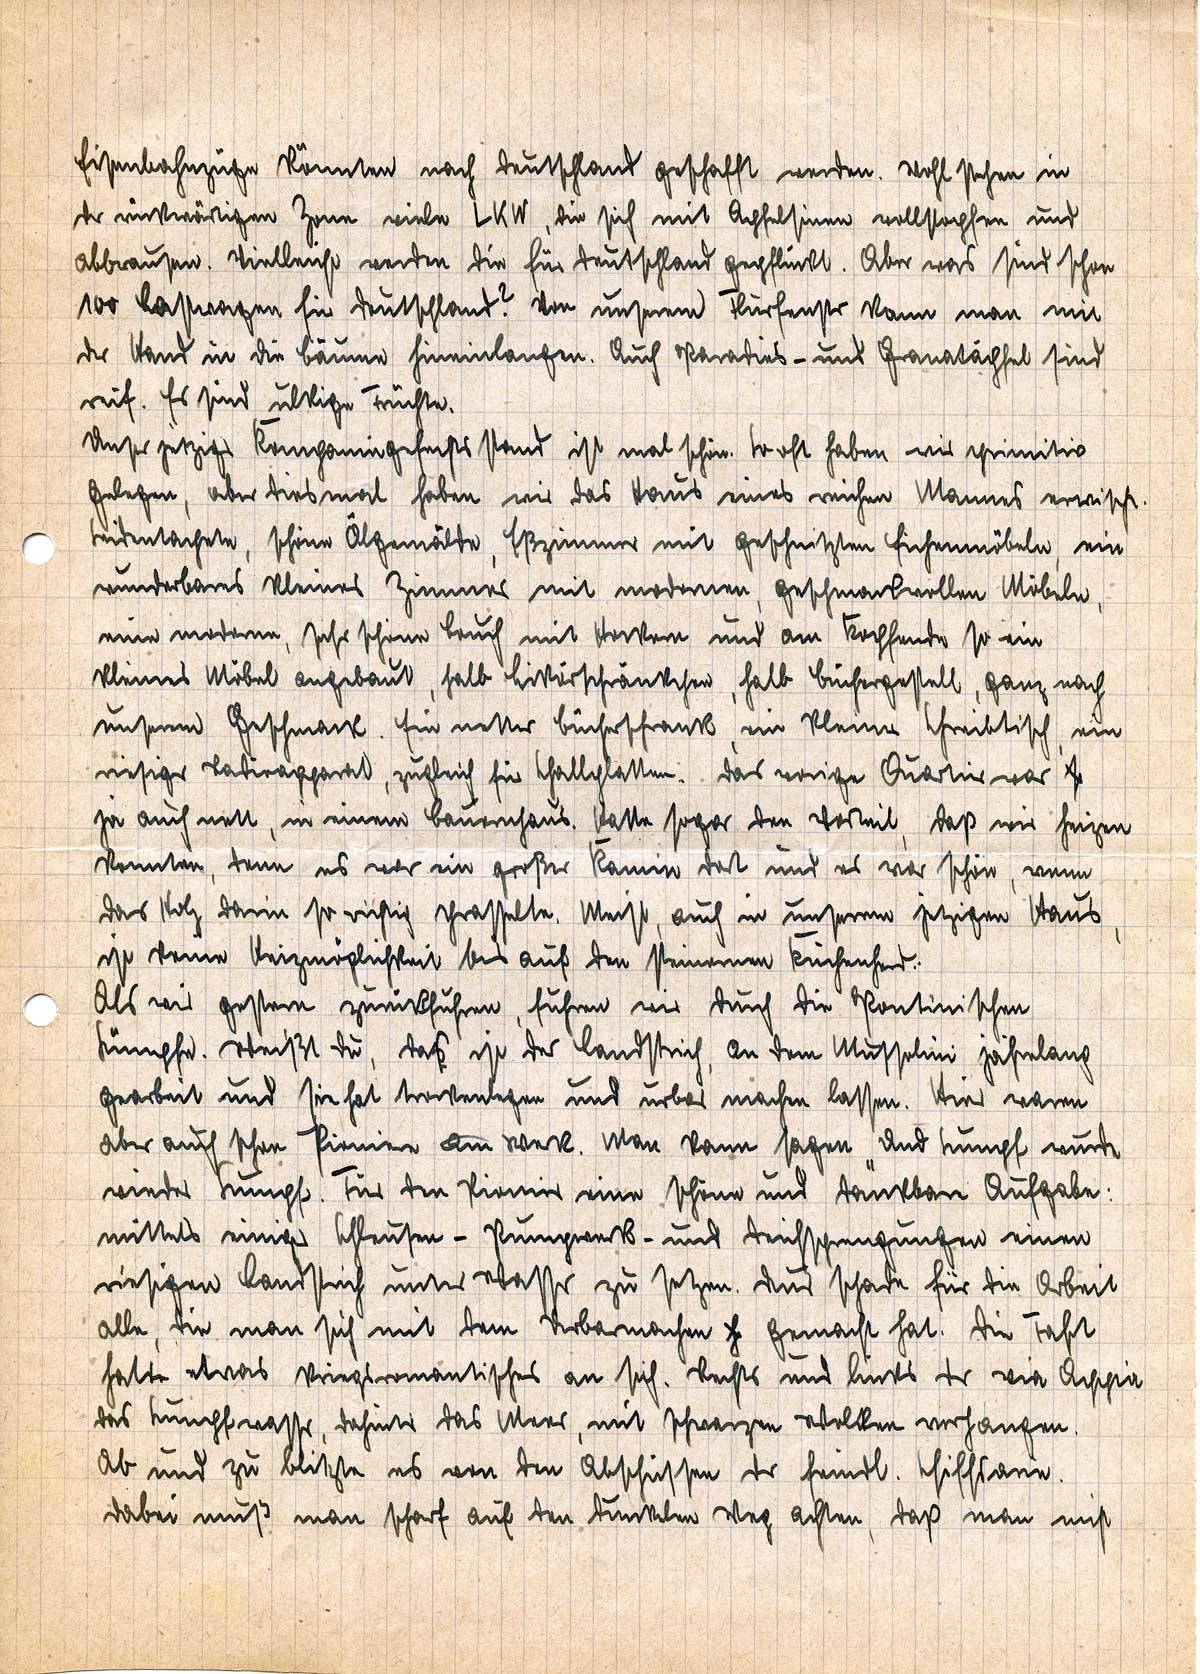 Eisenbahnzüge könnten nach Deutschland geschafft werden. Wohl stehen in
der rückwärtigen Zone viele LKW, die sich mit Apfelsinen vollstopfen und
abbrausen. Vielleicht werden die für Deutschland gepflückt. Aber was sind schon
100 Lastwagen für Deutschland? Von unserem Flurfenster kann man mit
der Hand in die Bäume hineinlangen. Auch Paradies- und Granatäpfel sind
reif. Es sind ulkige Früchte.
Unser jetziger Kompaniegefechtsstand ist mal schön. So oft haben wir primitiv
gelegen, aber diesmal haben wir das Haus eines reichen Mannes erwischt.
Seidentapete, schöne Ölgemälde, Eßzimmer mit geschnitzten Eichenmöbeln, ein
wunderbares kleines Zimmer mit modernen, geschmackvollen Möbeln,
eine moderne, sehr schöne Couch mit Hockern und am Kopfende so ein
kleines Möbel angebaut, halb Likörschränkchen, halb Büchergestell, ganz nach
unserem Geschmack. Ein netter Bücherschrank, ein kleiner Schreibtisch, ein
riesiger Radioapparat, zugleich für Schallplatten. Das vorige Quartier war
ja auch nett, in einem Bauernhaus. Hatte sogar den Vorteil, daß wir heizen
konnten, denn es war ein großer Kamin dort und es war schön, wenn
das Holz darin so richtig prasselte. Meist, auch in unserem jetzigen Haus,
ist keine Heizmöglichkeit bis auf den steinernen Küchenherd.
Als wir gestern zurückfuhren, fuhren wir durch die Pontinischen
Sümpfe. Weißt Du, das ist der Landstrich, an dem Mussolini jahrelang
gearbeit und sie hat trockenlegen und urbar machen lassen. Hier waren
aber auch schon Pioniere am Werk. Man kann sagen „Und Sumpf wurde
wieder Sumpf. Für den Pionier eine schöne und dankbare Aufgabe:
mittels einiger Schleusen- Pumpwerk- und Deichsprengungen einen
riesigen Landstrich unter Wasser zu setzen. Nur schade für die Arbeit
alle, die man sich mit dem Urbarmachen gemacht hat. Die Fahrt
hatte etwas Kriegsromantisches an sich. Rechts und links der via Appia
das Sumpfwasser, dahinter das Meer, mit schwarzen Wolken verhangen.
Ab und zu blitzte es von den Abschüssen der feindl. Schiffsarie.
Dabei muß man scharf auf den dunkelen Weg achten, daß man nicht